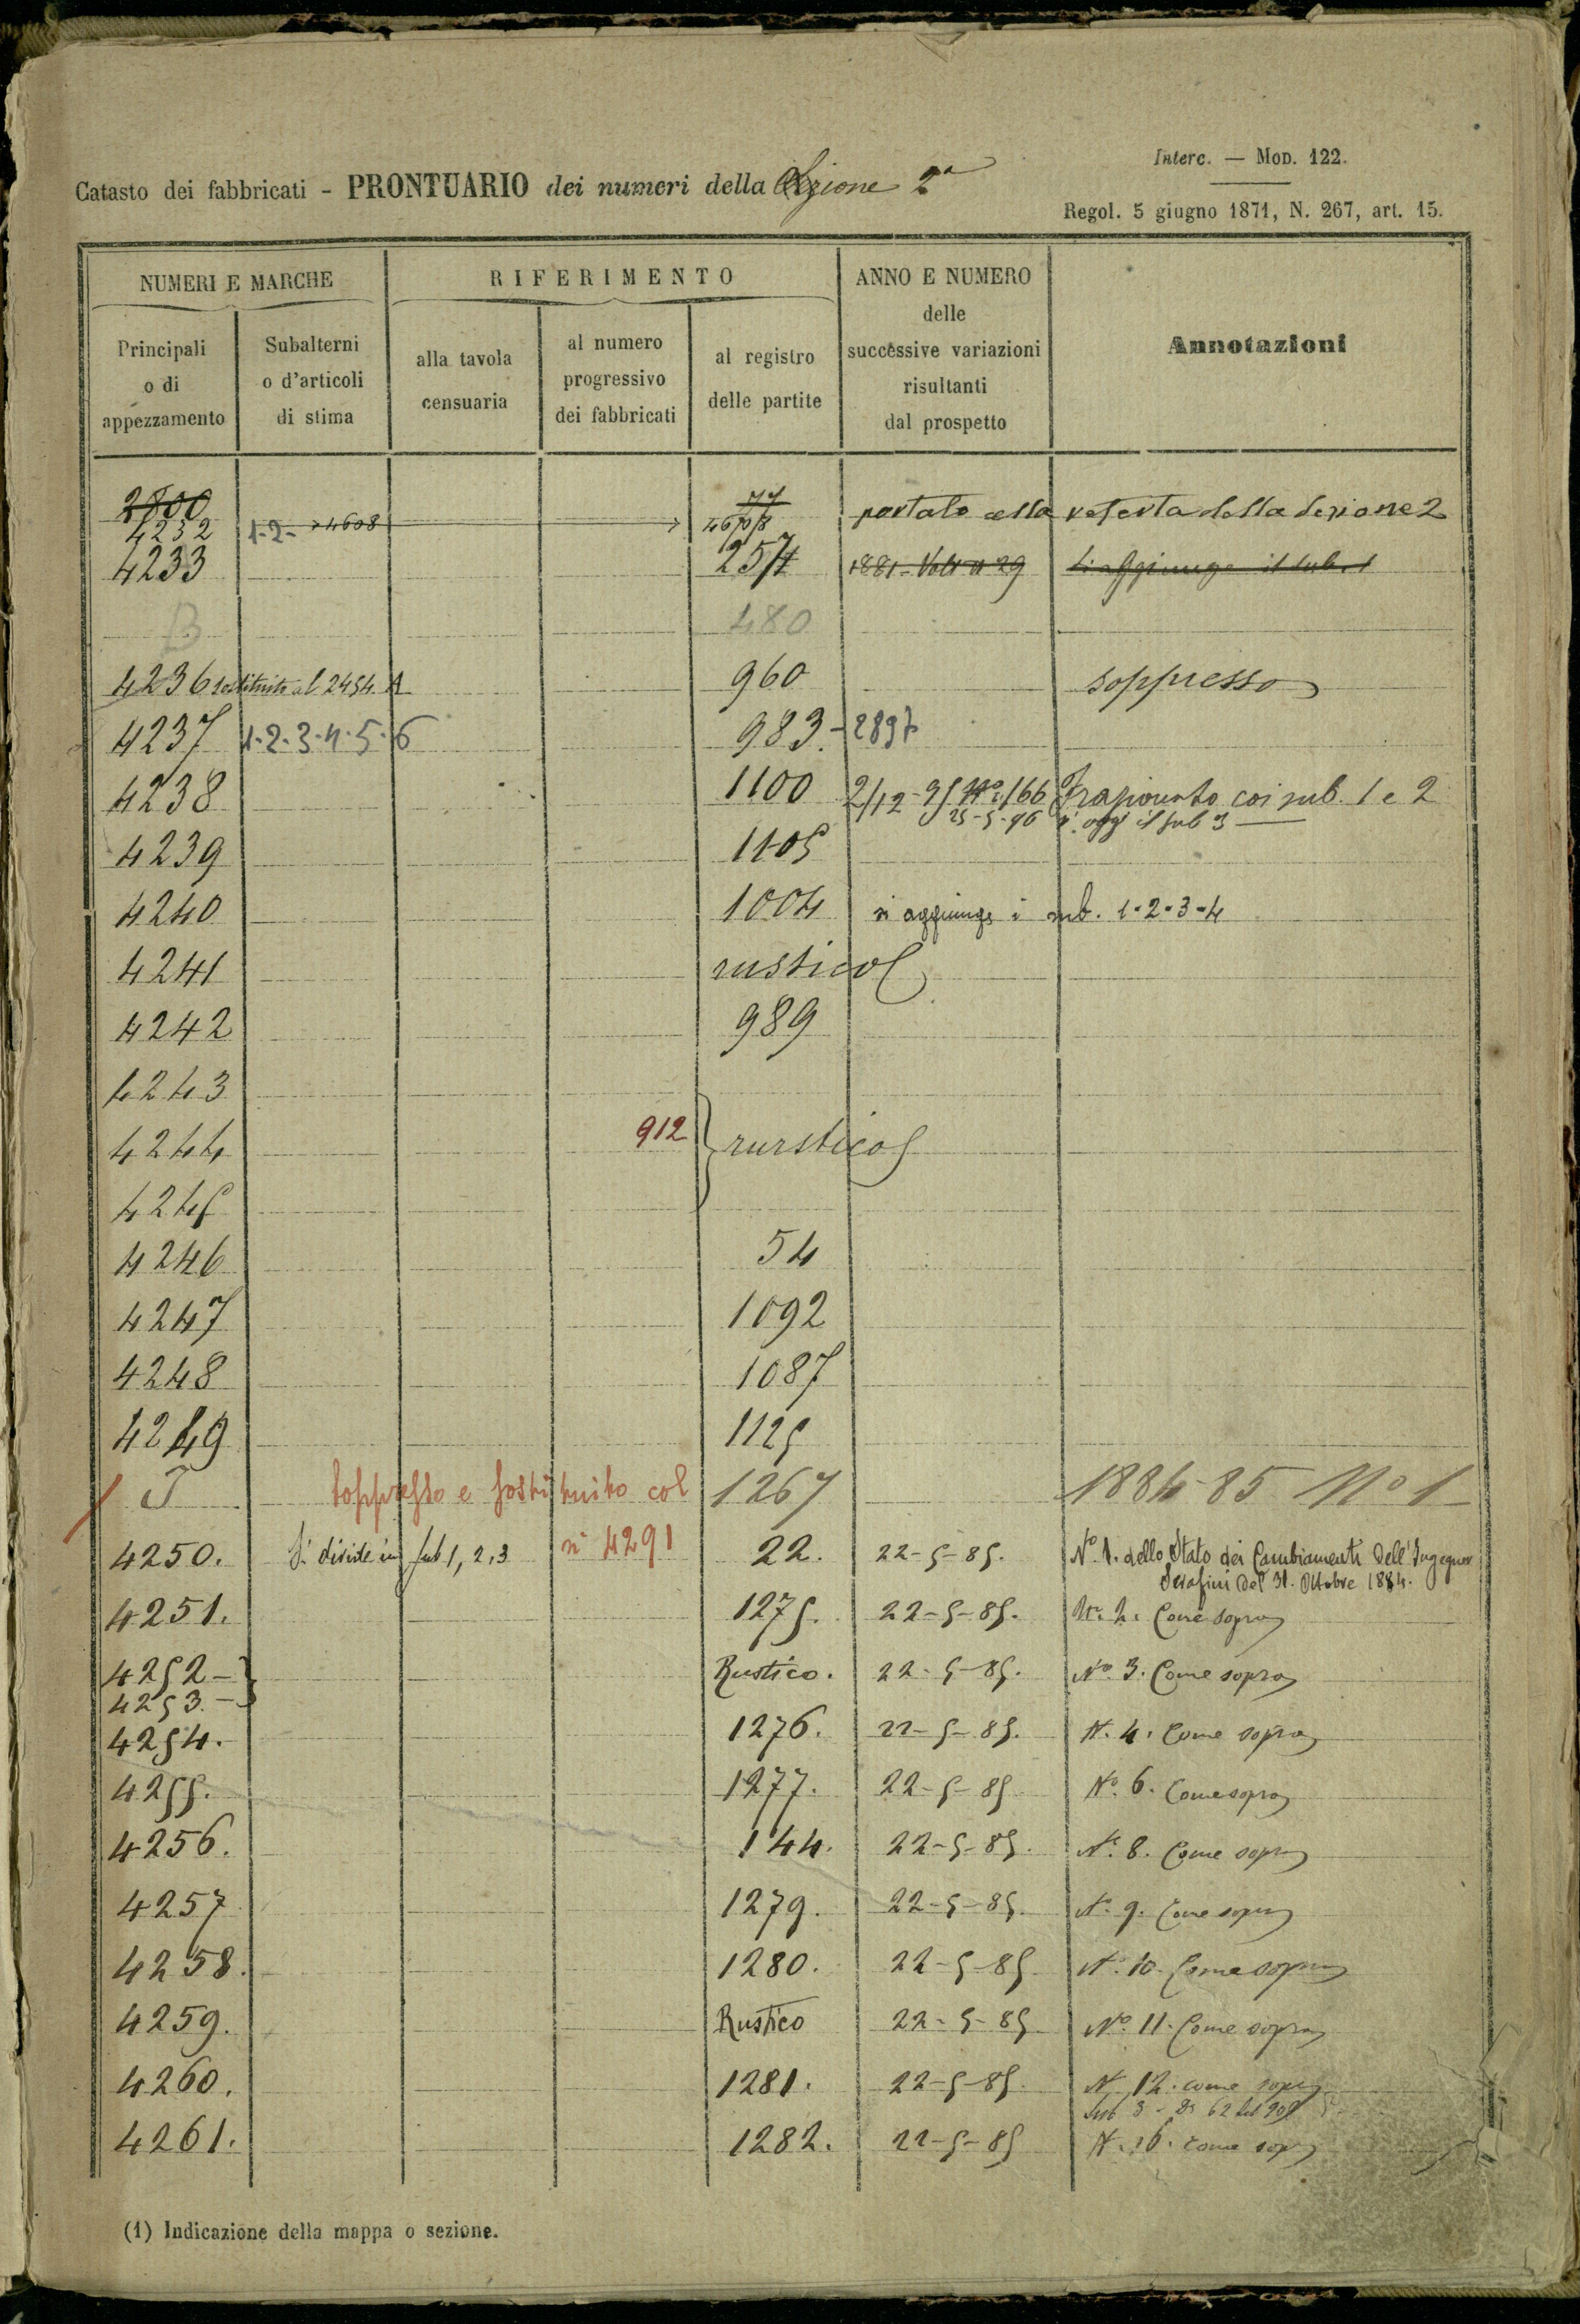 Interc. — Mod. 122.
Catasto dei fabbricati - PRONTUARIO dei numeri della Sezione 2a
Regol. 5 giugno 1871, N. 267, art. 15.
NUMERI E MARCHE
RIFERIMENTO
ANNO E NUMERO
delle
successive variazioni
risultanti
dal prospetto
Annotazioni
Principali
o di
appezzamento
Subalterni
o d'articoli
di stima
alla tavola
censuaria
al numero
progressivo
dei fabbricati
al registro
delle partite
2800
4232 1-2- 4608 portato alla della Sezione 2
4233 257 1881 - Volt n 29 Si aggiunge il sub. 1
B 480
4236 sostituito al 2454. A 960 soppresso
4237 1-2-3-4-5-6 983.-2897
4238 1100 2/12-95 No 166 Frazionato coi sub. 1 e 2
25-5-96 il sub 3
4239 1105
4240 1004 si aggiunge i sub. 1-2-3-4
4241 rustico
4242 989
4243
4244 912 rustico
4245
4246 54
4247 1092
4248 1087
4249 1125
I Soppresso e sostituito col 1267 1884-85 No 1
n° 4291
4250. Si divide in sub 1, 2, 3 22. 22-5-85. No. 1. dello Stato dei Cambiamenti Dell'Ingegner
Serafini del 31. Ottobre 1884.
4251. 1275. 22-5-85. No. 2. Come sopra
4252- Rustico. 22-5-85. No. 3. Come sopra
4253.-
4254. 1276. 22-5-85. N. 4. Come sopra
4255. 1277. 22-5-85 No. 6. Come sopra
4256. 144. 22-5-85. N. 8. Come sopra
4257 1279. 22-5-85. N. 9. Come sopra
4258. 1280. 22-5-85 N. 10. Come sopra
4259. Rustico 22-5-85 No. 11. Come sopra
4260. 1281. 22-5-85. N. 12. come sopra
Sub 3 - 62 del 908
4261. 1282. 22-5-85 N. 16. come sopra
(1) Indicazione della mappa o sezione.